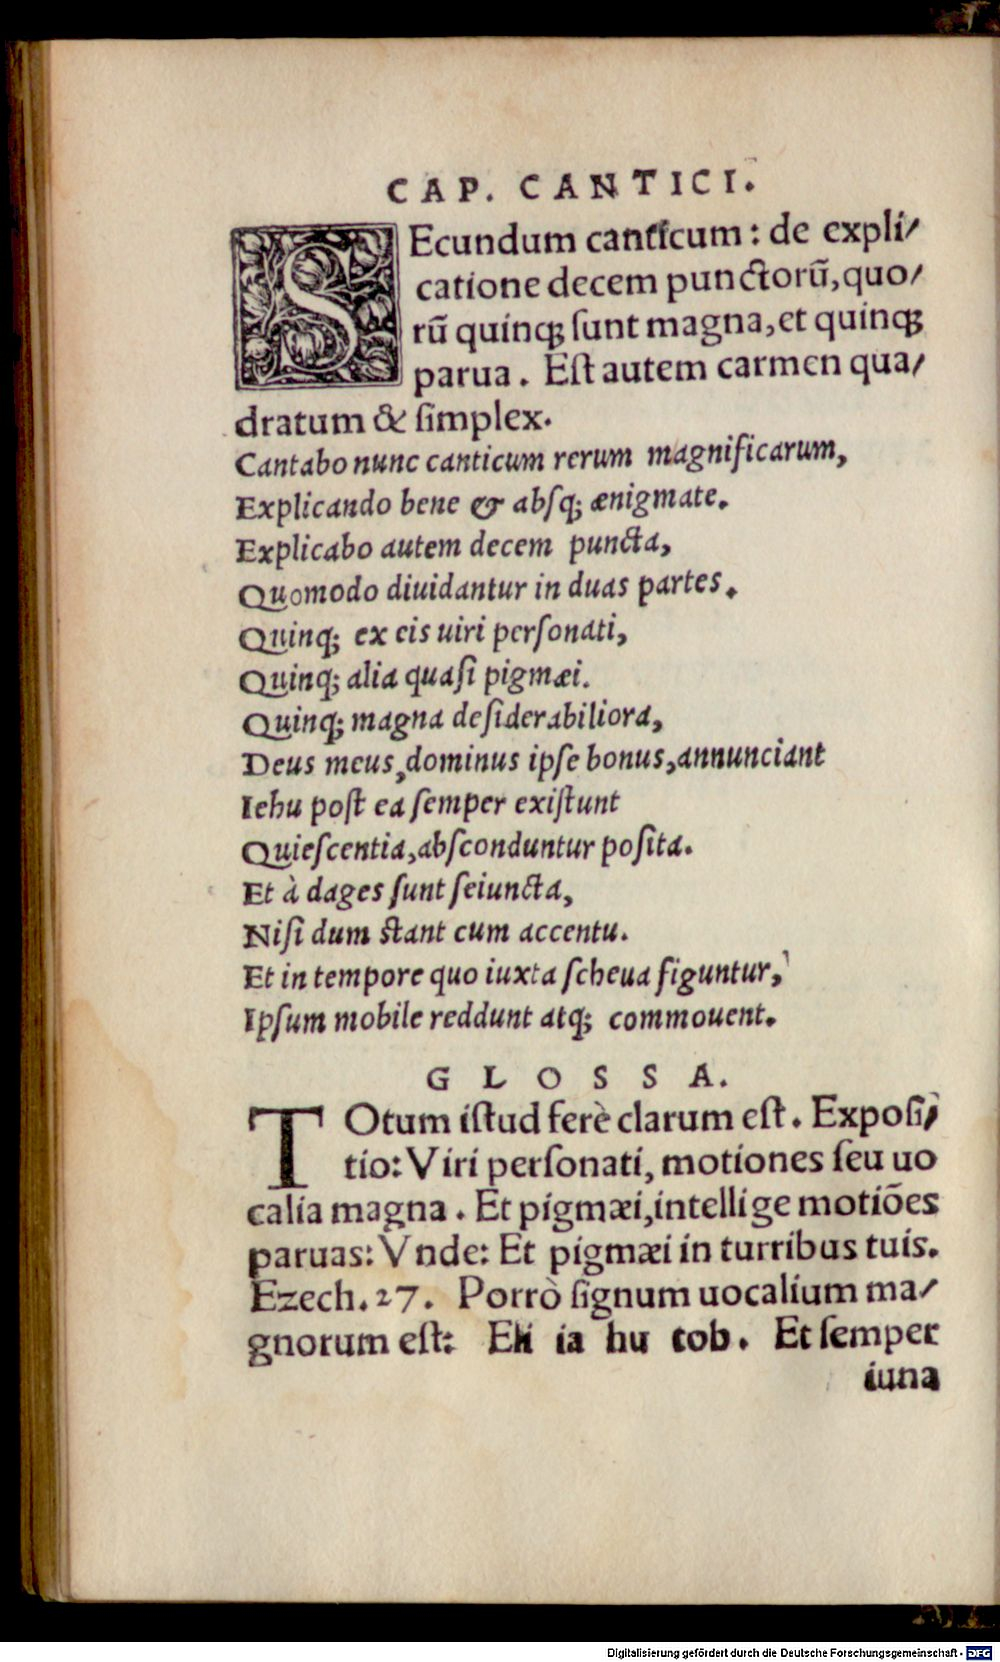 CAP. CANTICI.
SEcundum canticum : de expli/
catione decem punctorũ, quo/
rũ quinqȝ ſunt magna, et quinqȝ
parua . Eſt autem carmen qua/
dratum & ſimplex.
Cantabo nunc canticum rerum magnificarum,
Explicando bene & abſq; ænigmate.
Explicabo autem decem puncta,
Quomodo diuidantur in duas partes.
Quinq; ex eis uiri perſonati,
Quinq; alia quaſi pigmæi.
Quinq; magna deſiderabiliora,
Deus meus, dominus ipſe bonus, annunciant
Iehu poſt ea ſemper exiſtunt
Quieſcentia, abſconduntur poſita.
Et à dages ſunt ſeiuncta,
Niſi dum ſtant cum accentu.
Et in tempore quo iuxta ſcheua figuntur,
Ipſum mobile reddunt atq; commouent.
GLOSSA.
TOtum iſtud ferè clarum eſt . Expoſi/
tio: Viri perſonati, motiones ſeu uo
calia magna . Et pigmæi, intellige motiões
paruas: Vnde: Et pigmæi in turribus tuis.
Ezech. 27. Porrò ſignum uocalium ma/
gnorum eſt: Eli ia hu tob. Et ſemper
iuna
Digitalisierung gefördert durch die Deutsche Forschungsgemeinschaft - DFG